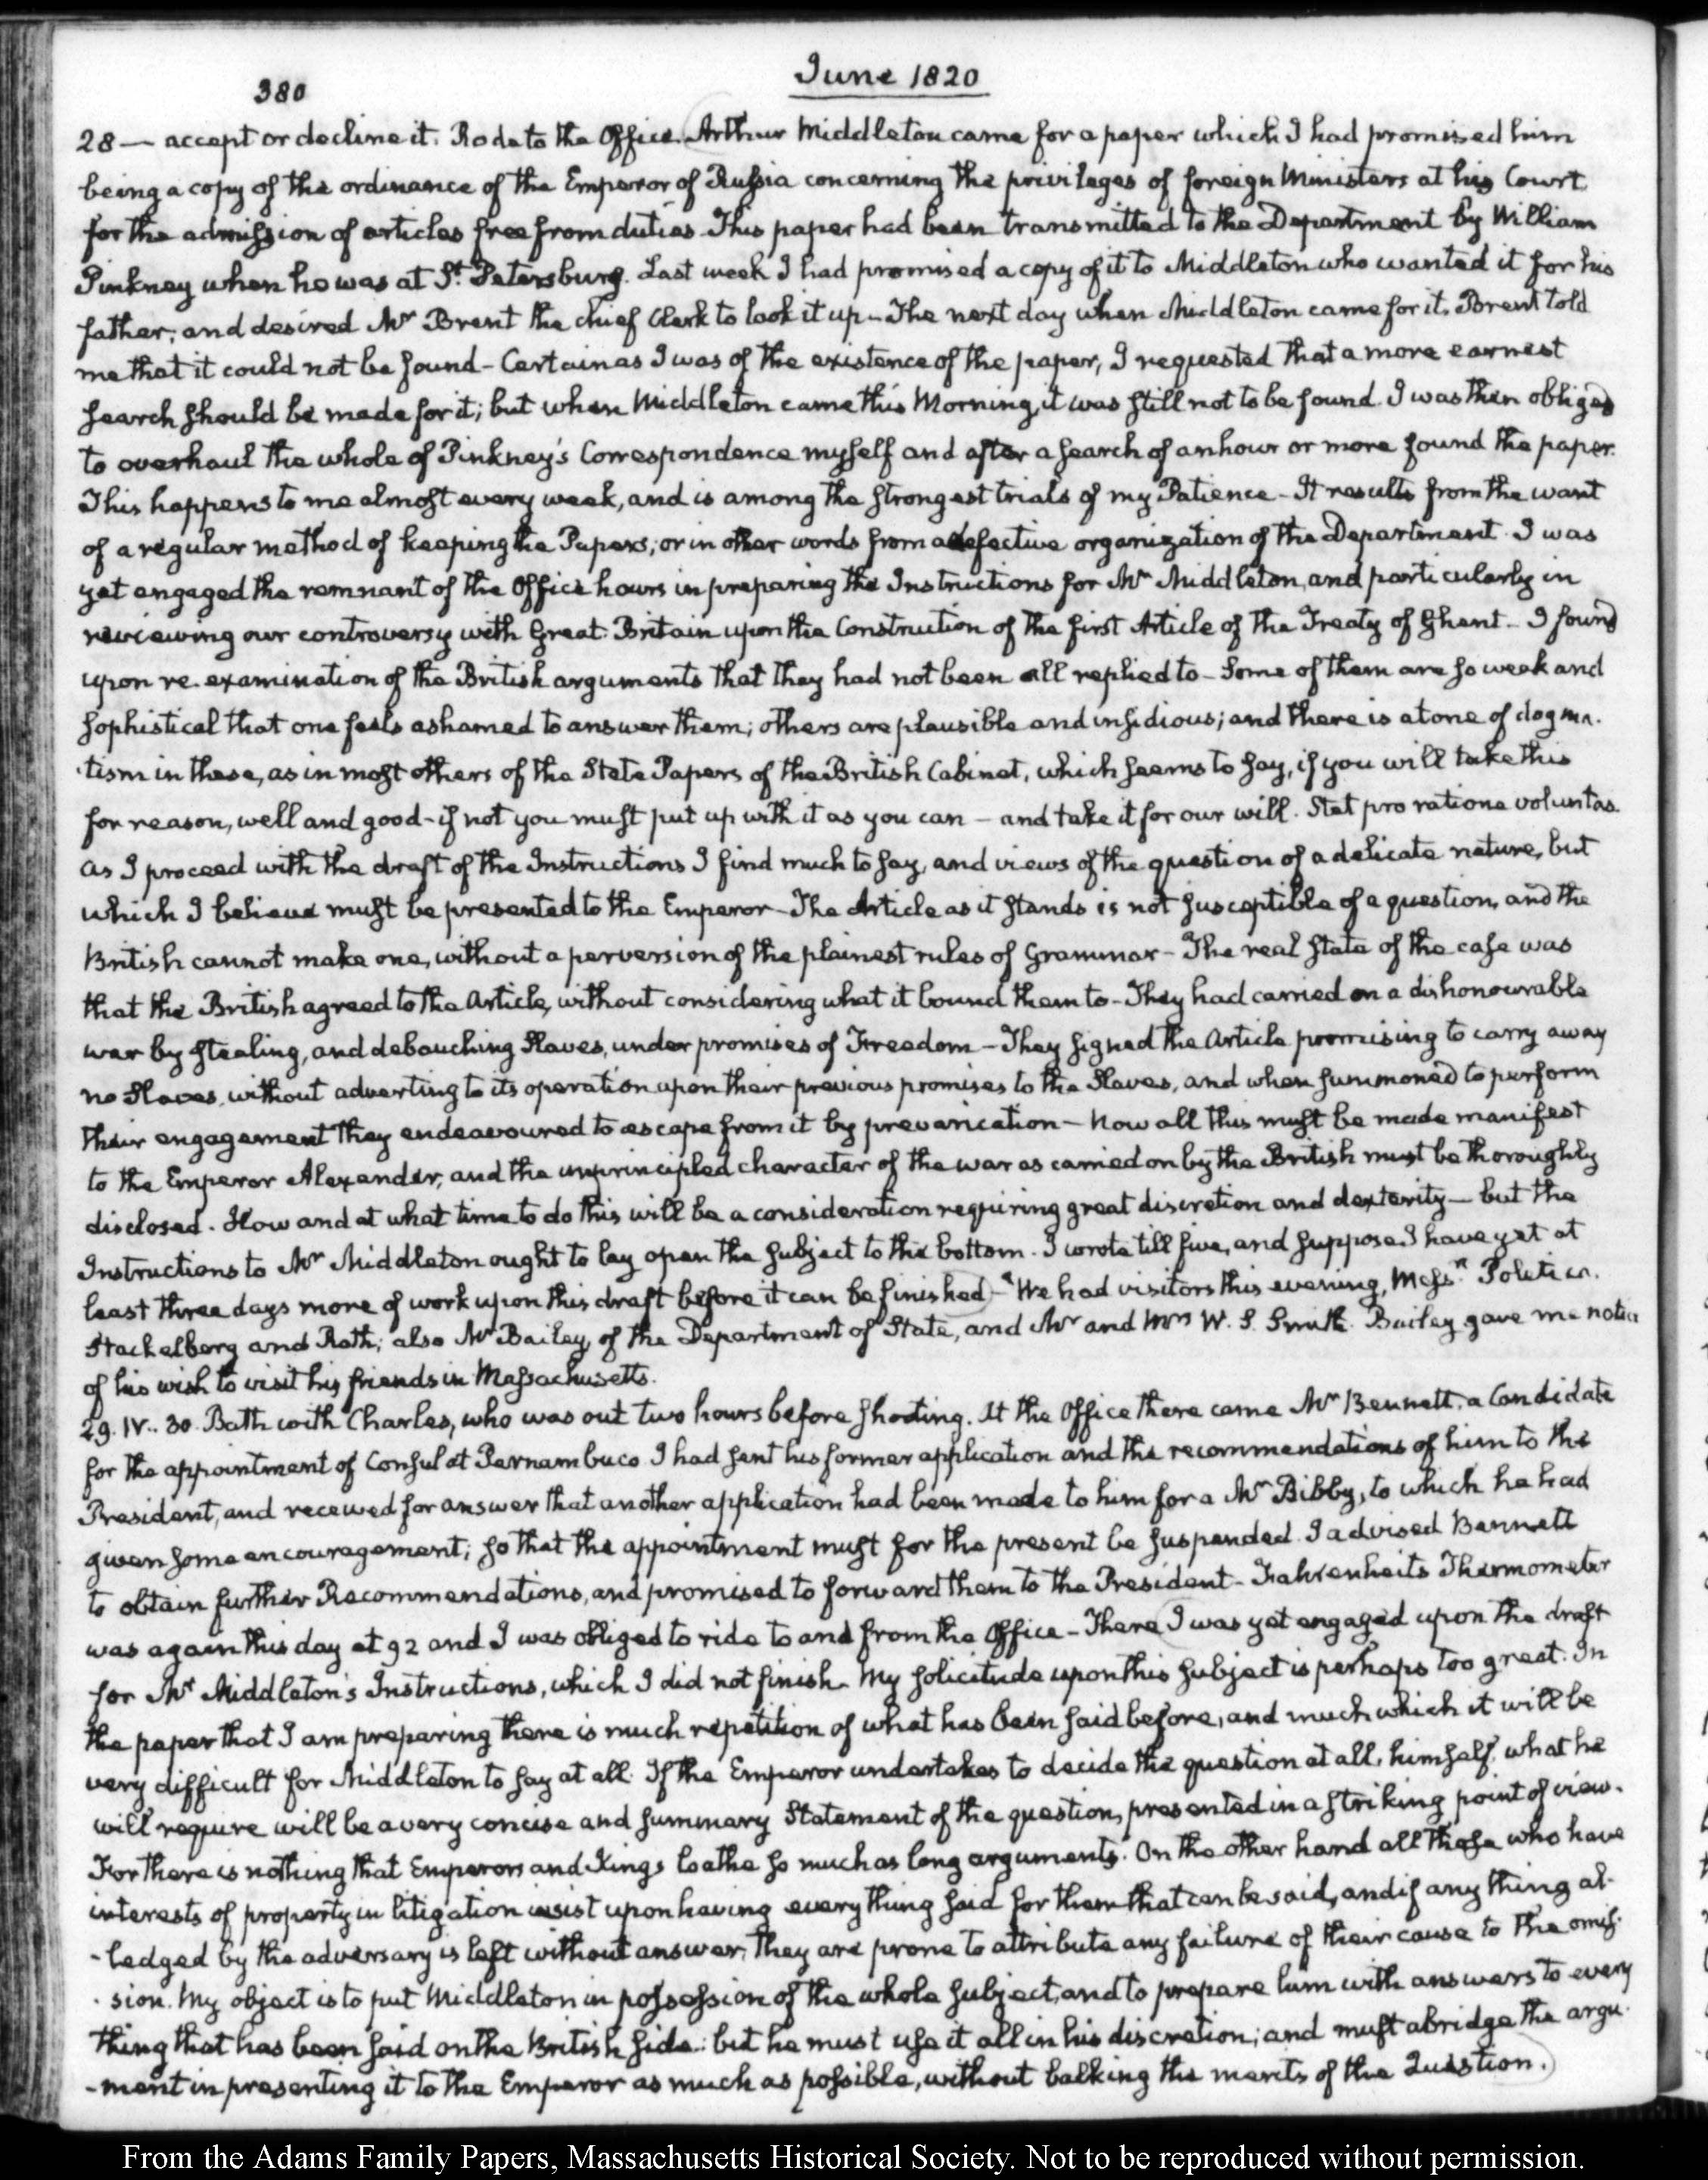 380
June 1820
28 — accept or decline it. Rode to the Office. Arthur Middleton came for a paper which I had promised him
being a copy of the ordinance of the Emperor of Russia concerning the privileges of foreign Ministers at his Court
for the admission of articles free from duties. This paper had been transmitted to the Department by William
Pinkney when he was at St. Petersburg. Last week I had promised a copy of it to Middleton who wanted it for his
father; and desired Mr Brent the chief Clerk to look it up — The next day when Middleton came for it, Brent told
me that it could not be found — Certain as I was of the existence of the paper, I requested that a more earnest
search should be made for it; but when Middleton came this Morning, it was still not to be found. I was then obliged
to overhaul the whole of Pinkney's Correspondence myself and after a search of an hour or more found the paper.
This happens to me almost every week, and is among the strongest trials of my Patience — It results from the want
of a regular method of keeping the Papers; or in other words from a defective organization of the Department. I was
yet engaged the remnant of the Office hours in preparing the Instructions for Mr Middleton, and particularly in
reviewing our controversy with Great-Britain upon the Construction of the first Article of the Treaty of Ghent — I found
upon re-examination of the British arguments that they had not been all replied to — Some of them are so weak and
sophistical that one feels ashamed to answer them; others are plausible and insidious; and there is a tone of dogma-
-tism in these, as in most others of the State Papers of the British Cabinet, which seems to say, if you will take this
for reason, well and good — if not you must put up with it as you can — and take it for our will. Stet pro ratione voluntas.
As I proceed with the draft of the Instructions I find much to say, and views of the question of a delicate nature, but
which I believe must be presented to the Emperor — The Article as it stands is not susceptible of a question, and the
British cannot make one, without a perversion of the plainest rules of Grammar — The real state of the case was
that the British agreed to the Article, without considering what it bound them to — They had carried on a dishonourable
war by stealing, and debauching Slaves, under promises of Freedom — They signed the Article promising to carry away
no Slaves, without adverting to its operation upon their previous promises to the Slaves, and when summoned to perform
their engagement they endeavoured to escape from it by prevarication — Now all this must be made manifest
to the Emperor Alexander, and the unprincipled character of the war as carried on by the British must be thoroughly
disclosed. How and at what time to do this will be a consideration requiring great discretion and dexterity — but the
Instructions to Mr Middleton ought to lay open the subject to the bottom. I wrote till five, and suppose I have yet at
least three days more of work upon this draft before it can be finished — We had visitors this evening, Messrs Politica.
Stackelberg and Roth; also Mr Bailey, of the Department of State, and Mr and Mrs W. S. Smith. Bailey gave me notice
of his wish to visit his friends in Massachusetts.
29. IV:. 30. Bath with Charles, who was out two hours before shooting. At the Office there came Mr Bennett, a Candidate
for the appointment of Consul at Pernambuco. I had sent his former application and the recommendations of him to the
President, and received for answer that another application had been made to him for a Mr Bibby, to which he had
given some encouragement; so that the appointment must for the present be suspended. I advised Bennett
to obtain further Recommendations, and promised to forward them to the President — Fahrenheits Thermometer
was again this day at 92 and I was obliged to ride to and from the Office — There I was yet engaged upon the draft
for Mr Middleton's Instructions, which I did not finish. My solicitude upon this subject is perhaps too great. In
the paper that I am preparing there is much repetition of what has been said before, and much which it will be
very difficult for Middleton to say at all. If the Emperor undertakes to decide the question at all, himself, what he
will require will be a very concise and summary Statement of the question, presented in a striking point of view.
For there is nothing that Emperors and Kings loathe so much as long arguments. On the other hand all those who have
interests of property in litigation insist upon having every thing said for them that can be said, and if any thing al-
-ledged by the adversary is left without answer, they are prone to attribute any failure of their cause to the omis-
-sion. My object is to put Middleton in possession of the whole subject, and to prepare him with answers to every
thing that has been said on the British side: but he must use it all in his discretion; and must abridge the argu-
-ment in presenting it to the Emperor as much as possible, without balking the merits of the Question.
From the Adams Family Papers, Massachusetts Historical Society. Not to be reproduced without permission.